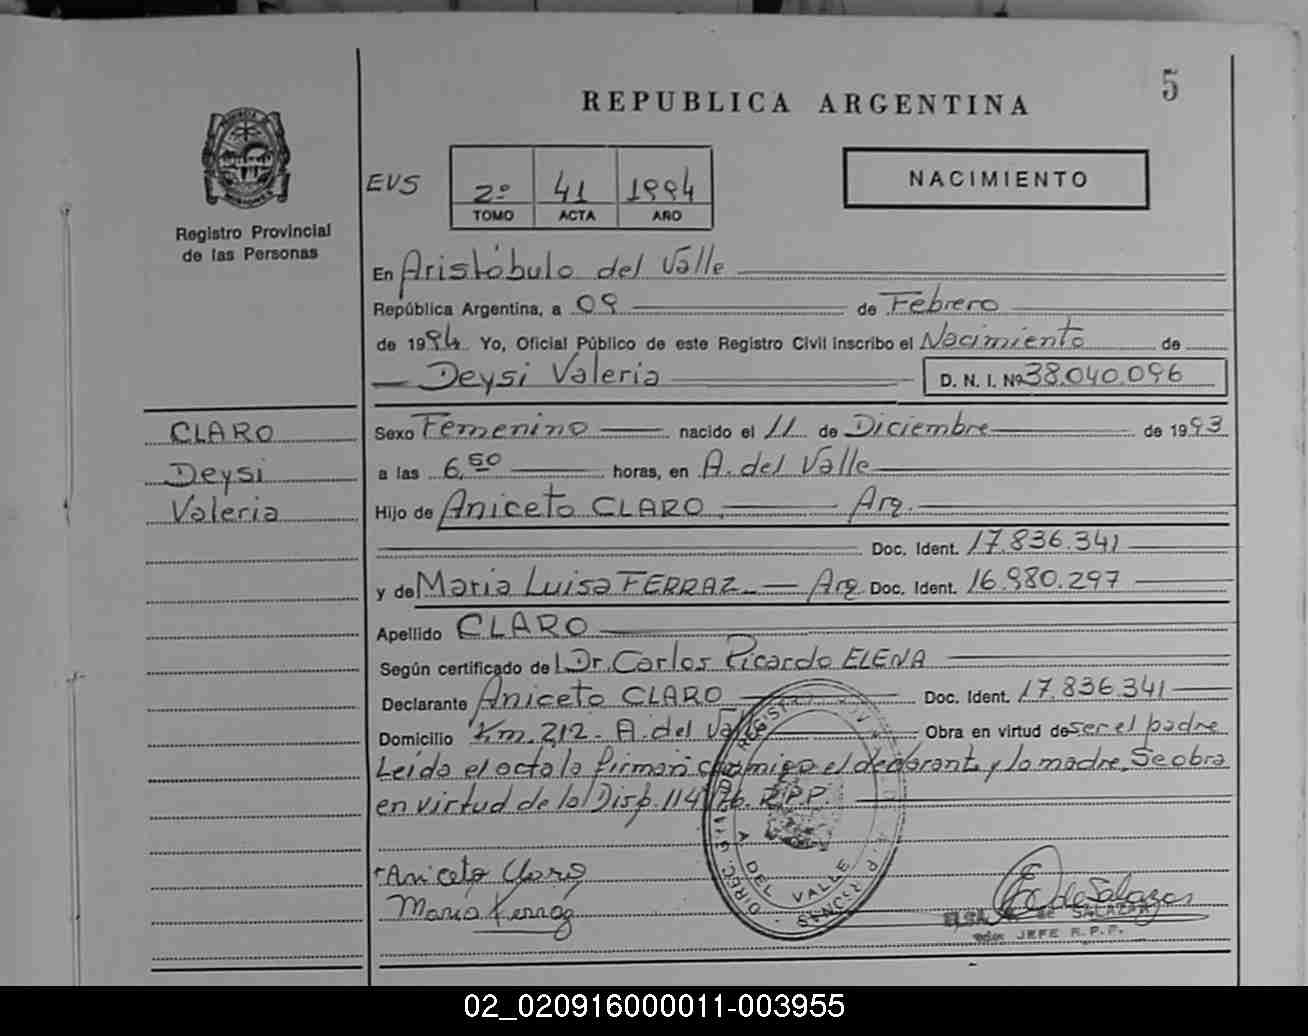 5
REPUBLICA ARGENTINA
EVS 2º 41 1994
TOMO ACTA AÑO
NACIMIENTO
Registro Provincial
de las Personas
En Aristóbulo del Valle
República Argentina, a 09 de Febrero
de 1994 Yo, Oficial Público de este Registro Civil inscribo el Nacimiento de
Deysi Valeria D. N. I. Nº 38.040.096
CLARO
Deysi
Valeria
Sexo Femenino nacido el 11 de Diciembre de 1993
a las 6,50 horas, en A. del Valle
Hijo de Aniceto CLARO. Arg.
Doc. Ident. 17.836.341
y de Maria Luisa FERRAZ. Arg. Doc. Ident. 16.980.297
Apellido CLARO
Según certificado de Dr. Carlos Ricardo ELENA
Declarante Aniceto CLARO Doc. Ident. 17.836.341
Domicilio Km. 212 - A. del Valle Obra en virtud de ser el padre
Leída el acta la firman conmigo el declarante y la madre. Se obra
en virtud de la Disp. 114 R.P.P.
A. DEL VALLE
Aniceto Claro
Maria Ferraz
E. de Salazar
ELSA de SALAZAR
JEFE R.P.P.
02_020916000011-003955